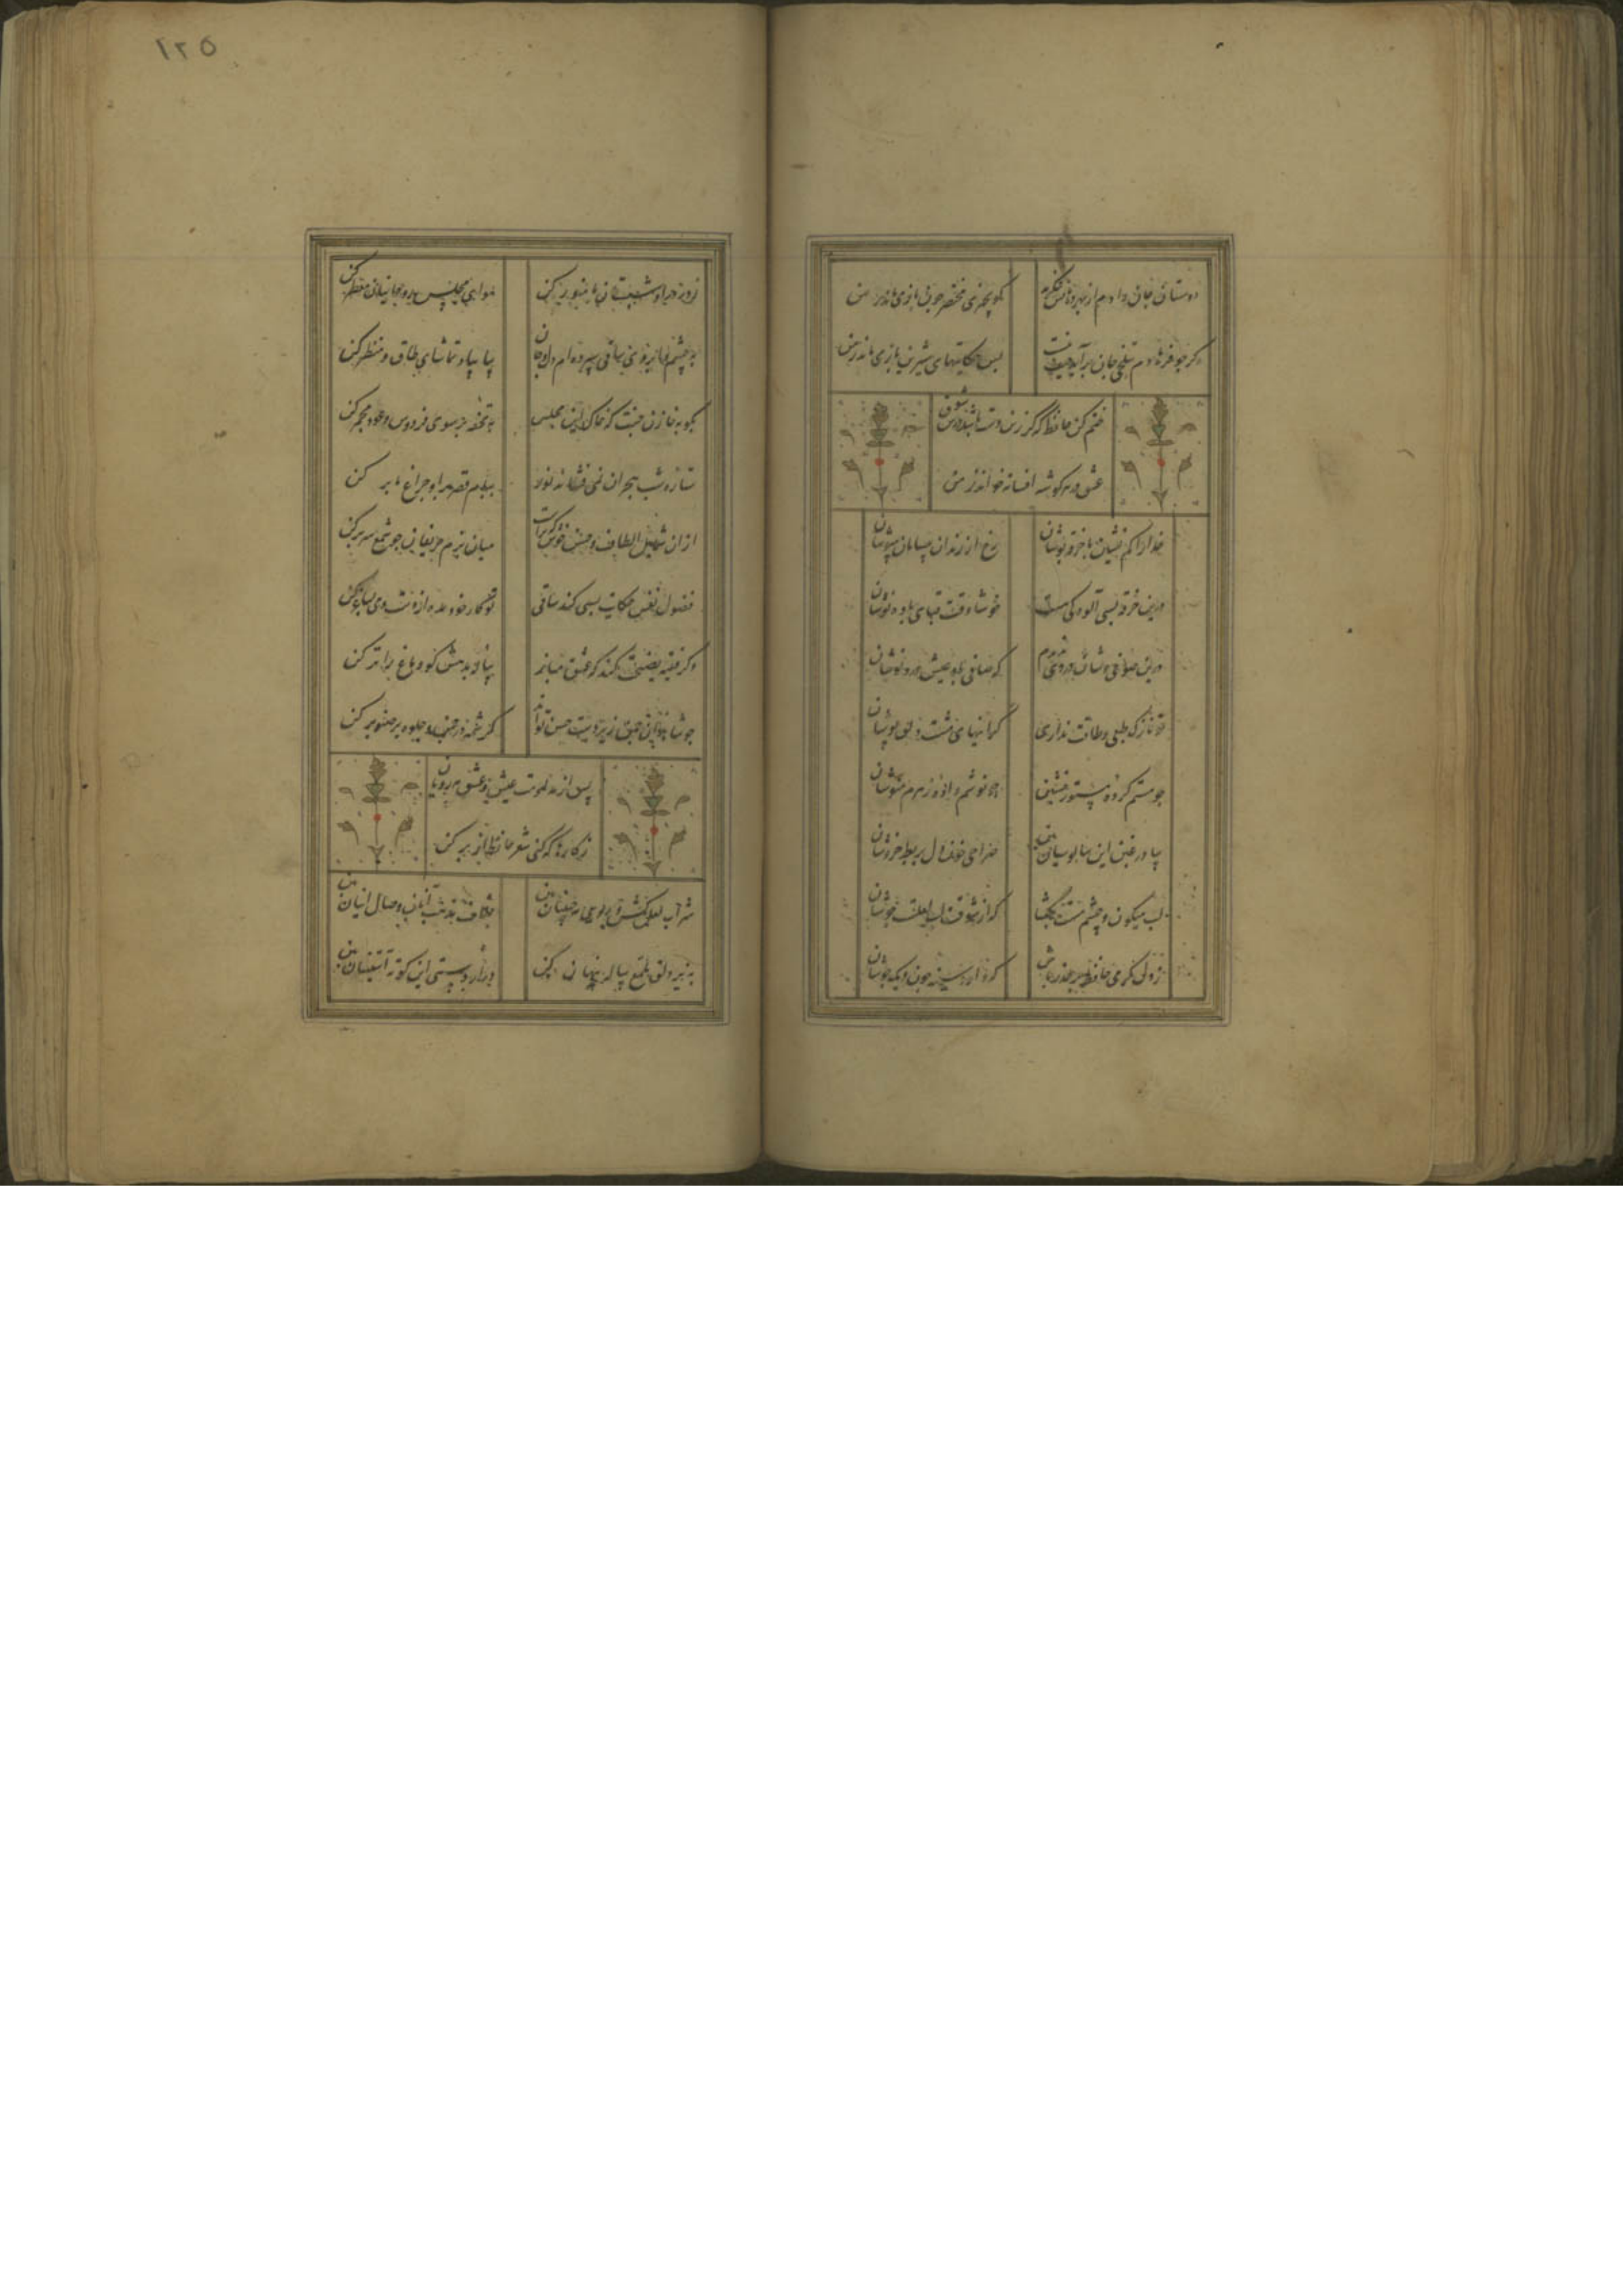 دوستان جان داده‌ام از بهر دهانش بنگرید
کو بچیزی مختصر چون باز می‌ماند ز من
گر چو فرهادم بتلخی جان برآید حیف نیست
بس حکایتهای شیرین باز می‌ماند ز من
ختم کن حافظ که گر زین دست باشد درس شوق
عشق در هر گوشه افسانه خواند ز من
خدا را کم نشین با خرقه پوشان
رخ از رندان بی سامان مپوشان
درین خرقه بسی آلودگی هست
خوشا وقت قبای باده نوشان
درین صوفی وشان دردی ندیدم
که صافی باد عیش دردنوشان
تو نازک طبعی و طاقت نداری
گرانیهای مشت دلق پوشان
چو مستم کرده مستور منشین
چو نوشم داده زهرم منوشان
بیا و ز غبن این سالوسیان بین
صراحی خون دل بربط خروشان
لب میگون و چشم مست بگشا
که از شوقت می لعلست جوشان
ز دلگرمی حافظ بر حذر باش
که دارد سینه چون دیگ جوشان
۱۲۵
ز در درآ و شبستان ما منور کن
هوای مجلس روحانیان معطر کن
به چشم و ابروی ساقی سپرده‌ام دل و جان
بیا بیا و تماشای طاق و منظر کن
بگو به خازن جنت که خاک این مجلس
به تحفه بر سوی فردوس و عود مجمر کن
ستاره شب هجران نمی فشاند نور
ببام قصر برآ و چراغ مه بر کن
از آن شمایل الطاف و حسن خوش که تراست
میان بزم حریفان چو شمع سر بر کن
فضول نفس حکایت بسی کند ساقی
تو کار خود مده از دست و می بساغر کن
وگر فقیه نصیحت کند که عشق مباز
پیاله بدهش گو دماغ را تر کن
چو شاهدان چمن زیردست حسن تواند
کرشمه بر سمن و جلوه بر صنوبر کن
پس از ملازمت عیش و عشق مه رویان
ز کارها که کنی شعر حافظ از بر کن
شراب لعل کش و روی مه جبینان بین
خلاف مذهب آنان جمال اینان بین
به زیر دلق ملمع پیاله پنهان کن
درازدستی این کوته آستینان بین